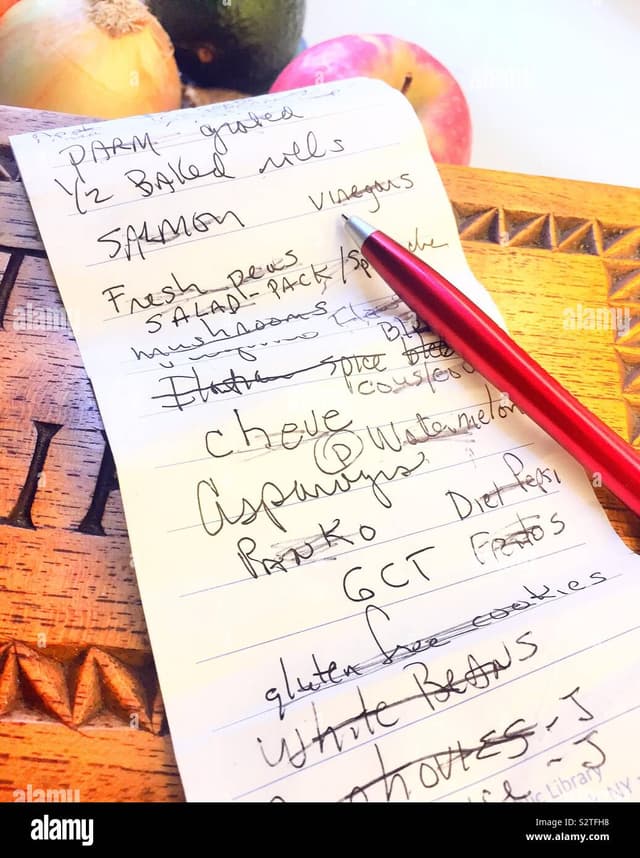 PARM grated
1/2 BAKed rolls
SALMON vinegars
Fresh peas
SALAD-PACK/
mushrooms
spice
couscou
cheve
P Watermelon
Asparagus
PANKO Diet Pepsi
GCT Freitos
gluten free cookies
White BEANS
hovies - J
- J
ic Library
NY
alamy
Image ID: S2TFH8
www.alamy.com